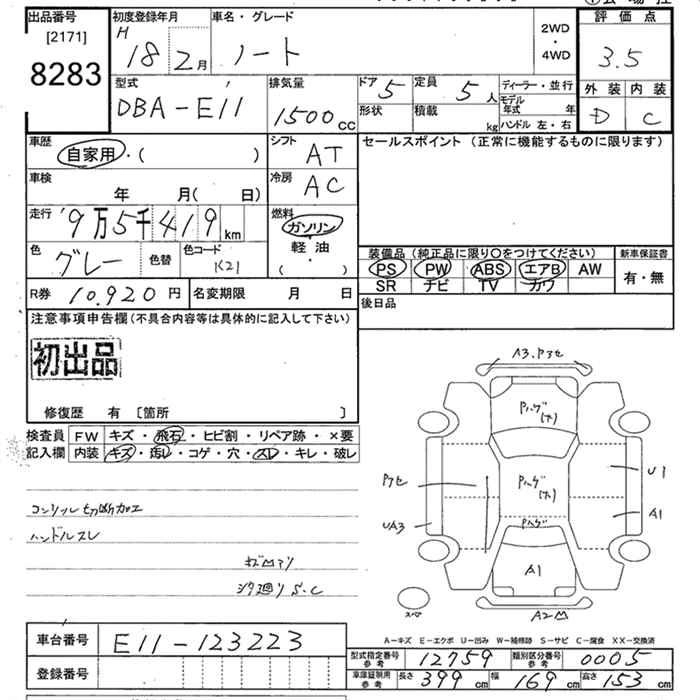 出品番号
[2171]
8283
初度登録年月
H 18 2月
車名・グレード
ノート
2WD
・
4WD
評価点
3.5
外装 内装
D C
型式
DBA-E11
排気量
1500cc
ドア 5
定員 5人
形状
積載 kg
ディーラー・並行
モデル年式 年
ハンドル 左・右
車歴
自家用・( )
シフト
AT
セールスポイント (正常に機能するものに限ります)
車検
年 月( 日)
冷房
AC
走行
'9万5千419km
燃料
ガソリン
軽・油
( ・ )
色
グレー
色替
色コード
K21
装備品 (純正品に限り〇をつけてください)
PS PW ABS エアB AW
SR ナビ TV カワ
新車保証書
有・無
R券 10,920円
名変期限 月 日
後日品
注意事項申告欄(不具合内容等は具体的に記入して下さい)
初出品
修復歴 有 〔箇所 〕
検査員
記入欄
FW キズ・飛石・ヒビ割・リペア跡・×要
内装 キズ・汚レ・コゲ・穴・スレ・キレ・破レ
コンソール切断加工
ハンドルスレ
シタ廻りS.C
A3.Pアセ
Pハゲ
(大)
Pハゲ
(大)
Pハゲ
A1
Pアセ
UA3
U1
A1
スペア
A2凹
A-キズ E-エクボ U-凹み W-補修跡 S-サビ C-腐食 XX-交換済
車台番号
E11-123223
登録番号
型式指定番号
参考
12759
類別区分番号
参考
0005
車庫証明用
参考
長さ 399cm 幅 169cm 高さ 153cm